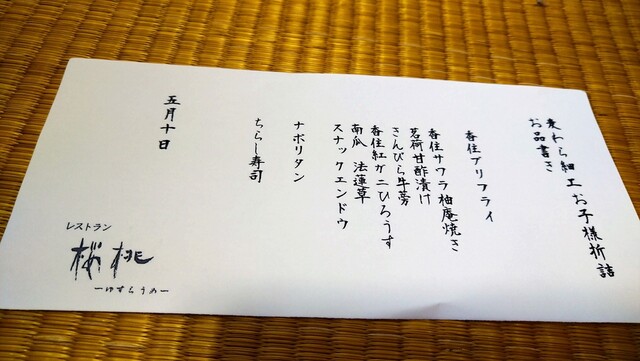 麦わら細工お子様折詰
お品書き
香住ブリフライ
香住サワラ柚庵焼き
茗荷甘酢漬け
きんぴら牛蒡
香住紅ガニひろうす
南瓜 法蓮草
スナックエンドウ
ナポリタン
ちらし寿司
五月十日
レストラン
桜桃
ーゆすらうめー